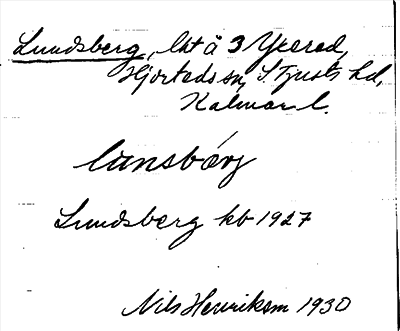 Lundsberg, lht å 3 Yxered,
Hjorteds sn, S Tjusts hd,
Kalmar l.
lunsbærj
Lundsberg kb 1927
Nils Henriksson 1930